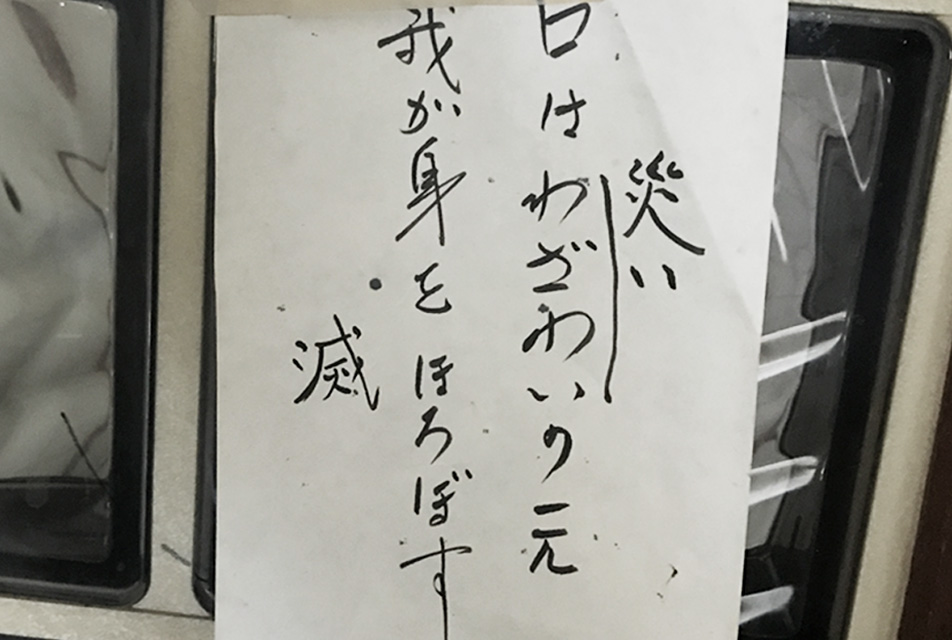 災い
口はわざわいの元
我が身をほろぼす
滅